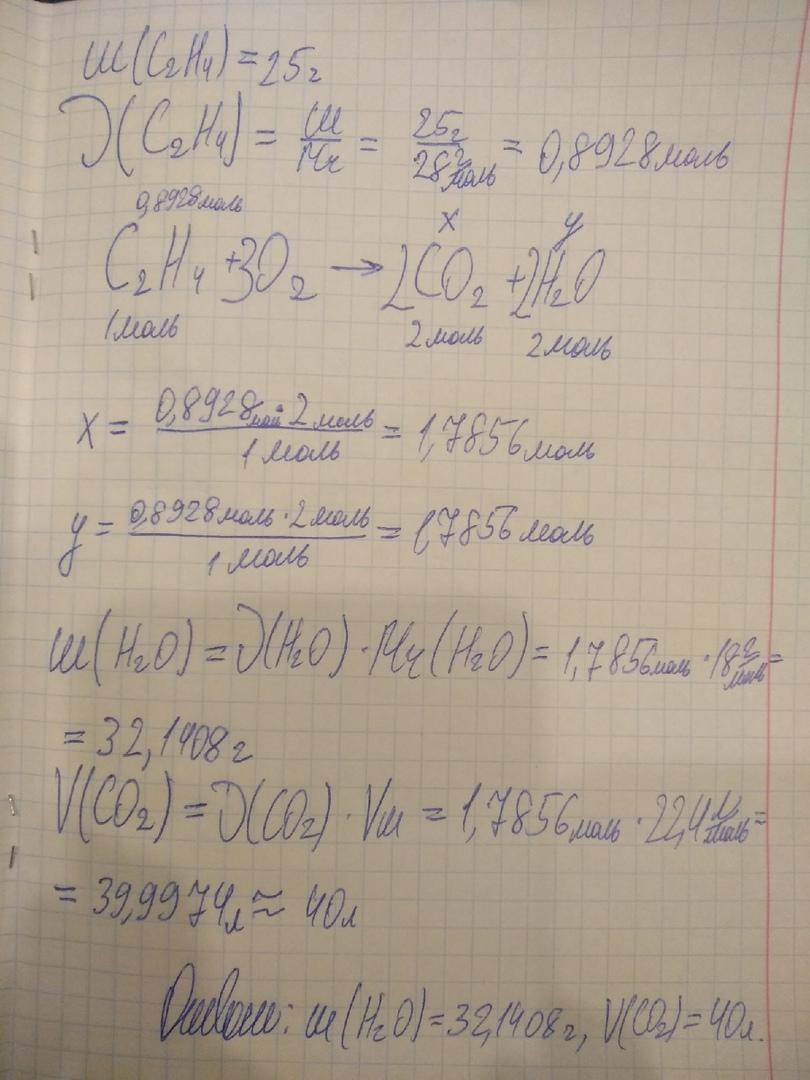 m(C₂H₄) = 25г
ν(C₂H₄) = m/Mr = 25г/28 г/моль = 0,8928моль
0,8928моль x y
C₂H₄ + 3O₂ → 2CO₂ + 2H₂O
1моль 2моль 2моль
x = 0,8928моль · 2моль / 1моль = 1,7856моль
y = 0,8928моль · 2моль / 1моль = 1,7856моль
m(H₂O) = ν(H₂O) · Mr(H₂O) = 1,7856моль · 18 г/моль =
= 32,1408г
V(CO₂) = ν(CO₂) · Vm = 1,7856моль · 22,4 л/моль =
= 39,9974л ≈ 40л
Ответ: m(H₂O) = 32,1408г, V(CO₂) = 40л.